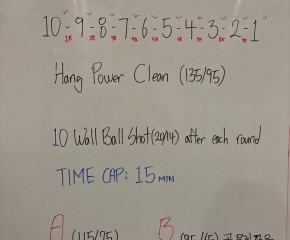 10-9-8-7-6-5-4-3-2-1
Hang Power Clean (135/95)
10 Wall Ball Shot (20/14) after each round
TIME CAP: 15 MIN
A (115/75) B